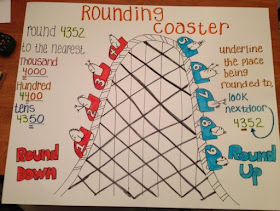 Rounding
coaster
round 4352
to the nearest
Thousand
4000
Hundred
4400
tens
4350
Round
Down
4
3
2
1
5
6
7
8
9
underline
the place
being
rounded to,
look
nextdoor
4352
Round
Up